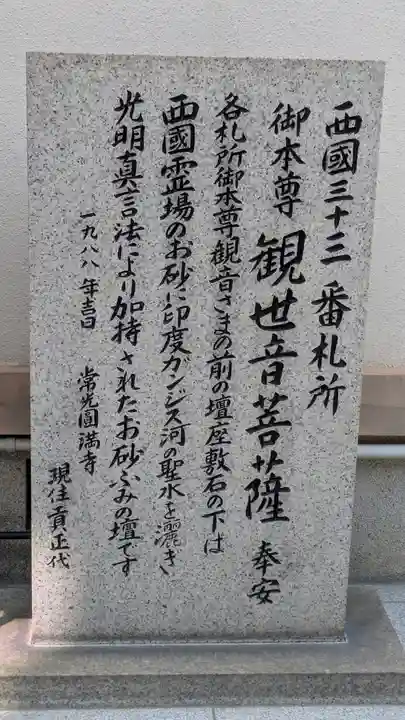 西國三十三番札所
御本尊 観世音菩薩 奉安
各札所御本尊観音さまの前の壇座敷石の下は
西國霊場のお砂に印度ガンジス河の聖水を灑ぎ
光明真言法により加持されたお砂ふみの壇です
一九八八年吉日 常光圓満寺
現住貢正代